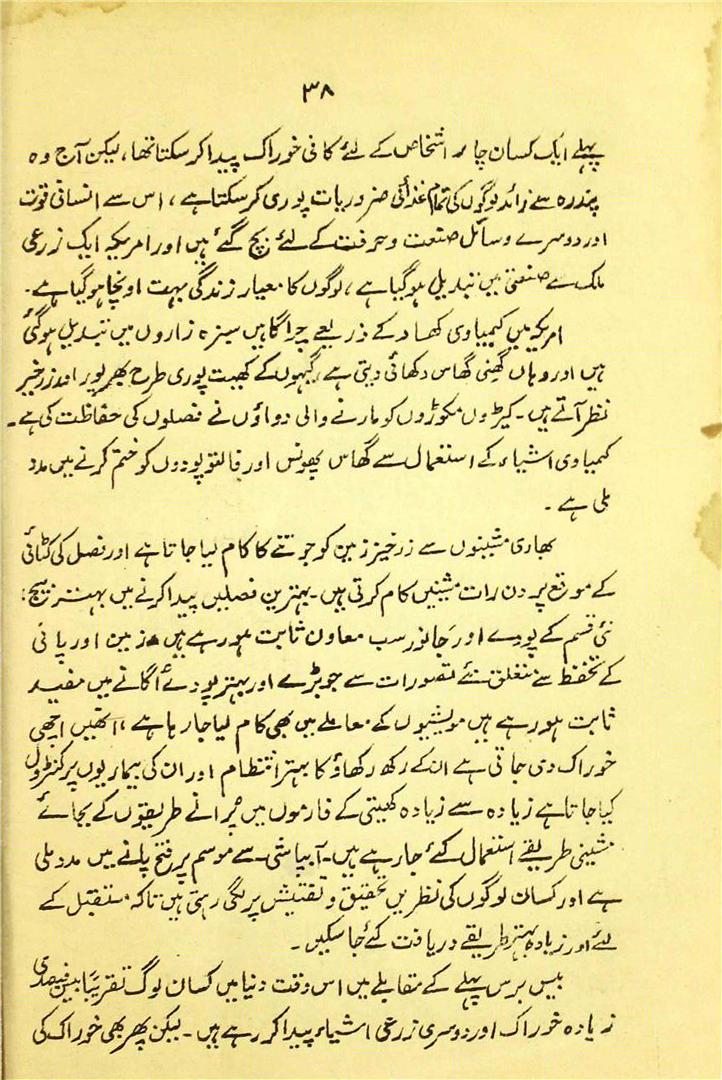 ۳۸
پہلے ایک کسان چار اشخاص کے لئے کافی خوراک پیدا کر سکتا تھا، لیکن آج وہ
پندرہ سے زائد لوگوں کی تمام غذائی ضروریات پوری کر سکتا ہے، اس سے انسانی قوت
اور دوسرے وسائل صنعت و حرفت کے لئے بچ گئے ہیں اور امریکہ ایک زرعی
ملک سے صنعتی میں تبدیل ہو گیا ہے، لوگوں کا معیار زندگی بہت اونچا ہو گیا ہے۔
امریکہ میں کیمیاوی کھاد کے ذریعے چراگاہیں سبزہ زاروں میں تبدیل ہو گئی
ہیں اور وہاں گھنی گھاس دکھائی دیتی ہے، گیہوں کے کھیت پوری طرح بھرپور اور زرخیز
نظر آتے ہیں۔ کیڑوں مکوڑوں کو مارنے والی دواؤں نے فصلوں کی حفاظت کی ہے۔
کیمیاوی اشیاء کے استعمال سے گھاس پھونس اور فالتو پودوں کو ختم کرنے میں مدد
ملی ہے۔
بھاری مشینوں سے زرخیز زمین کو جوتنے کا کام لیا جاتا ہے اور فصل کی کٹائی
کے موقع پر دن رات مشینیں کام کرتی ہیں۔ بہترین فصلیں پیدا کرنے میں بہتر بیج؛
نئی قسم کے پودے اور جانور سب معاون ثابت ہو رہے ہیں۔ زمین اور پانی
کے تحفظ سے متعلق نئے تصورات سے جو بڑے اور بہتر پودے اُگانے میں مفید
ثابت ہو رہے ہیں مویشیوں کے معاملے میں بھی کام لیا جا رہا ہے، انھیں اچھی
خوراک دی جاتی ہے ان کے رکھ رکھاؤ کا بہتر انتظام اور ان کی بیماریوں پر کنٹرول
کیا جاتا ہے زیادہ سے زیادہ کھیتی کے فارموں میں پُرانے طریقوں کے بجائے
مشینی طریقے استعمال کئے جا رہے ہیں۔ آبپاشی سے موسم پر فتح پانے میں مدد ملی
ہے اور کسان لوگوں کی نظریں تحقیق و تفتیش پر لگی رہتی ہیں تاکہ مستقبل کے
لئے اور زیادہ بہتر طریقے دریافت کئے جا سکیں۔
بیس برس پہلے کے مقابلے میں اس وقت دنیا میں کسان لوگ تقریباً بیس فیصدی
زیادہ خوراک اور دوسری زرعی اشیاء پیدا کر رہے ہیں۔ لیکن پھر بھی خوراک کی